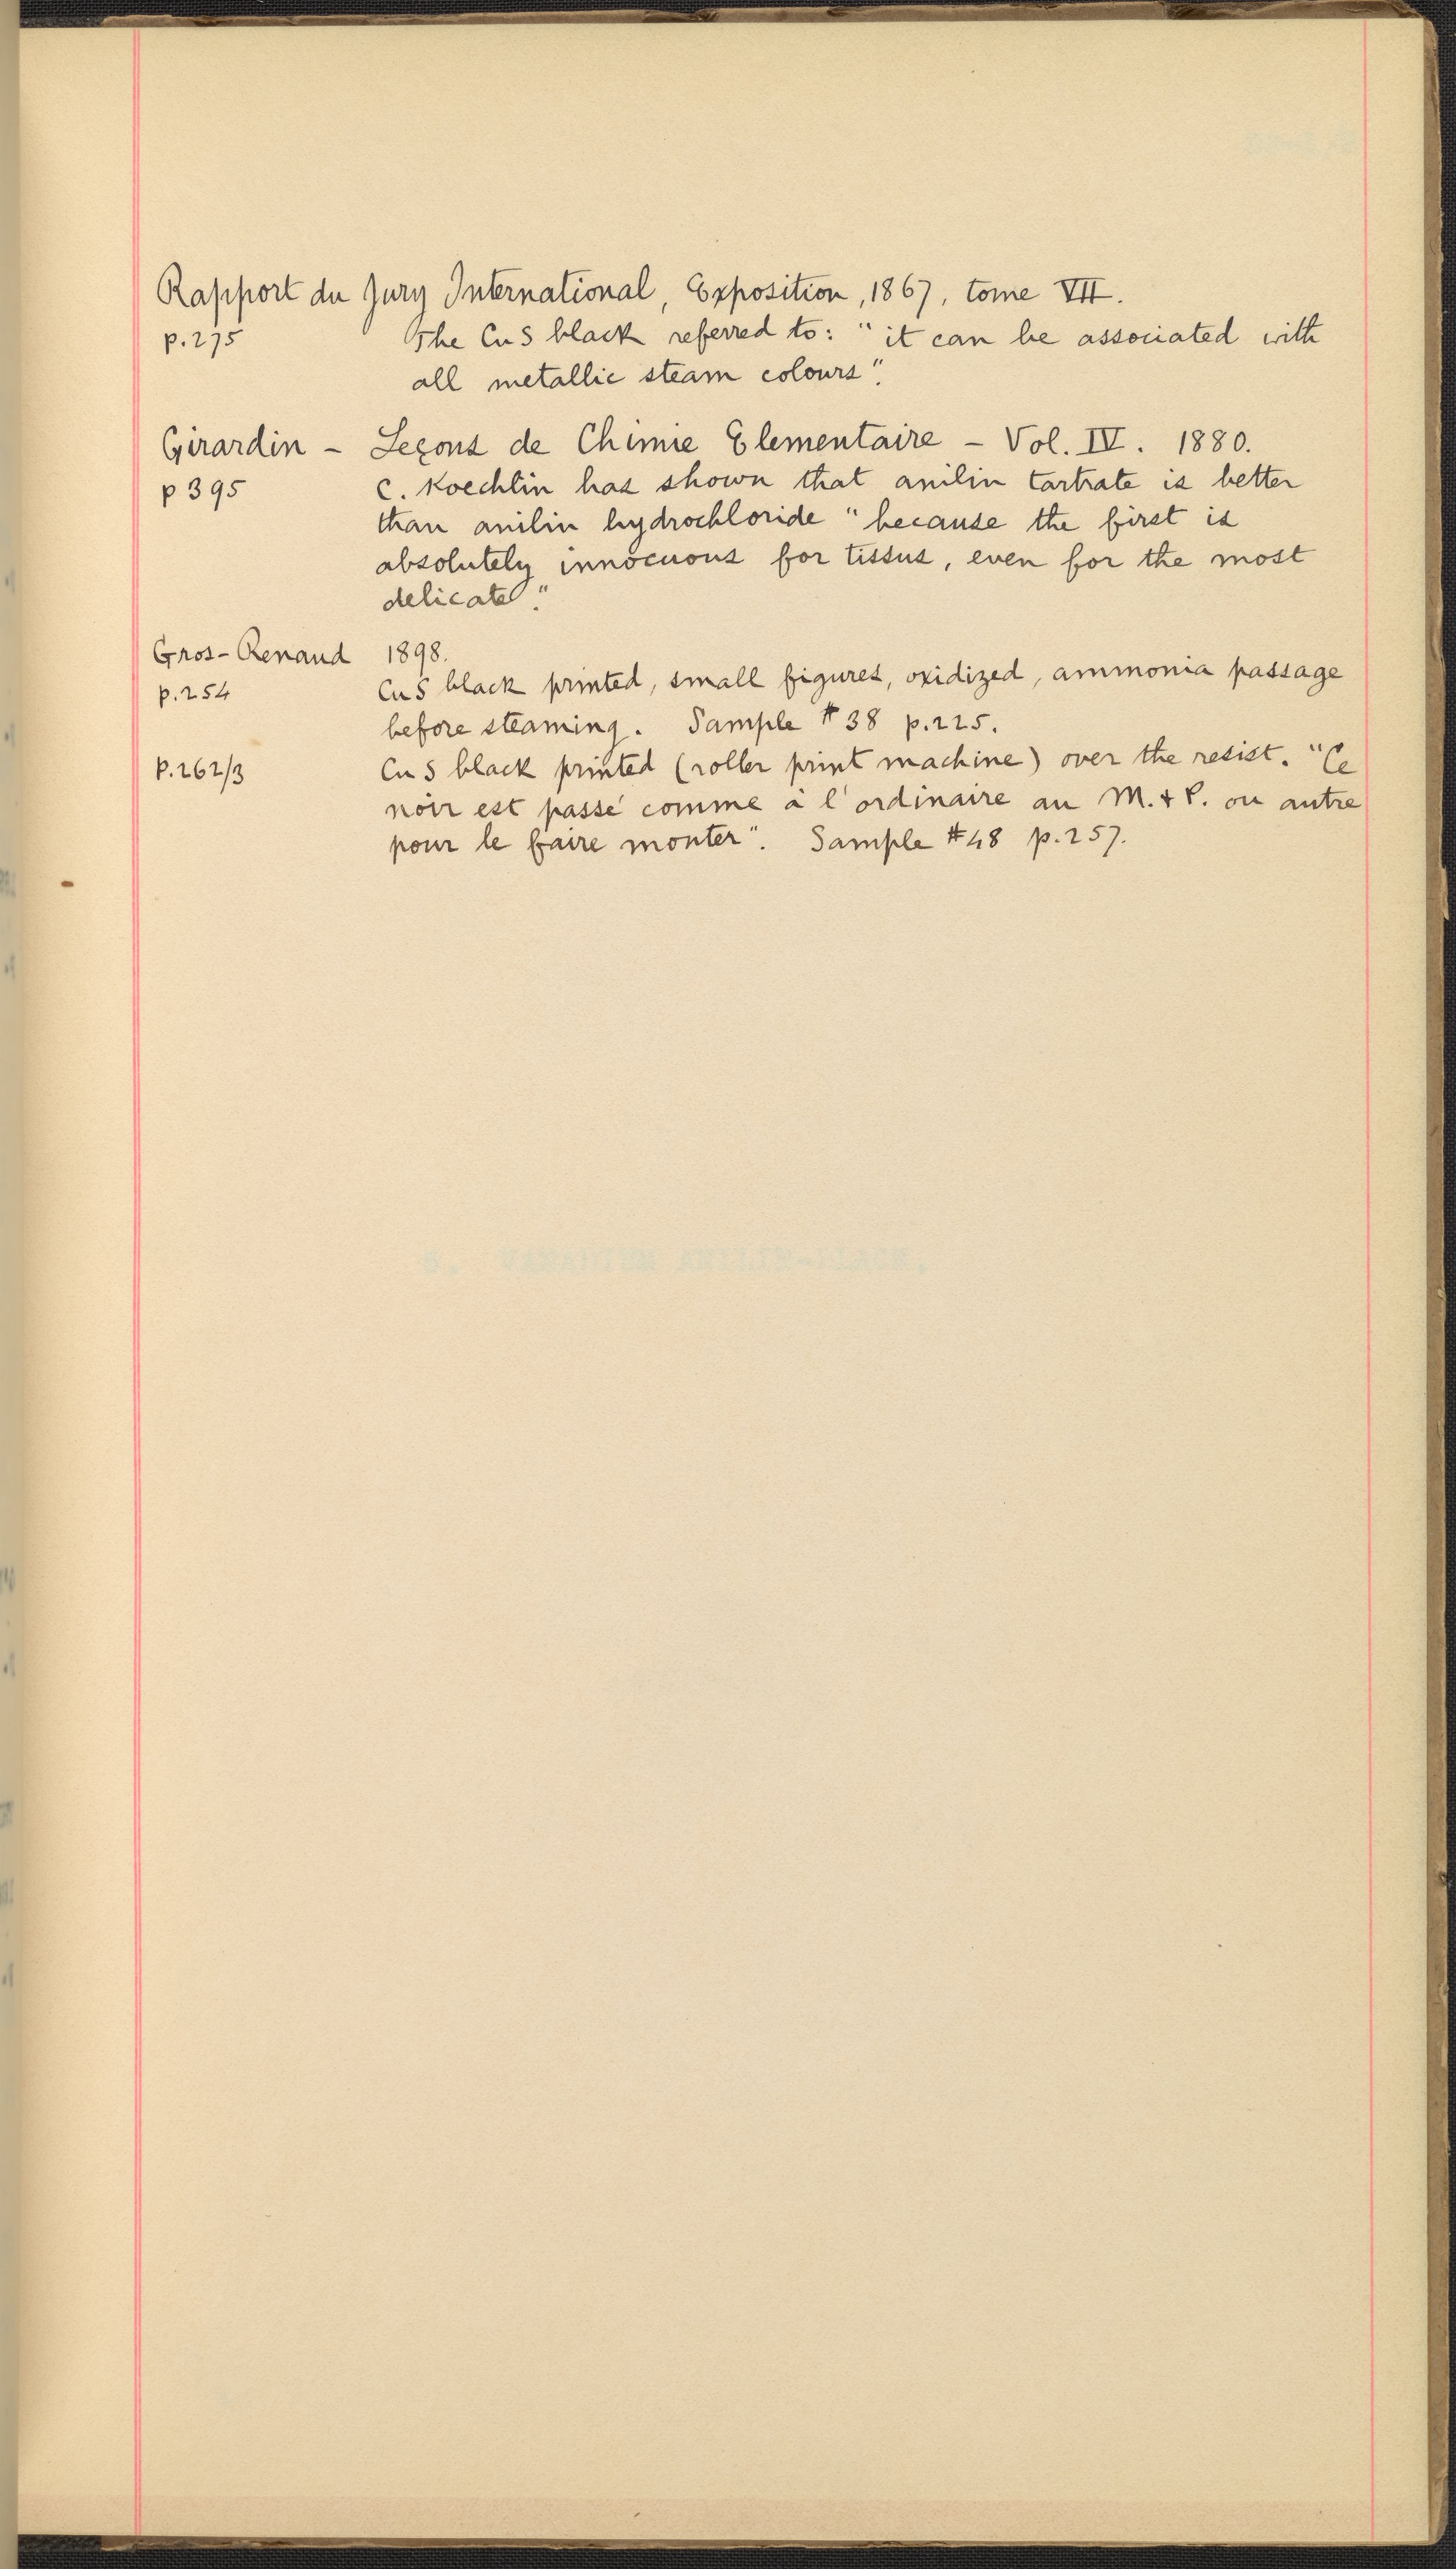 Rapport du Jury International, Exposition, 1867, tome VII.
p.275 The CuS black referred to: "it can be associated with
all metallic steam colours".
Girardin - Leçons de Chimie Elementaire - Vol. IV. 1880.
p 395 C. Koechlin has shown that anilin tartrate is better
than anilin hydrochloride "because the first is
absolutely innocuous for tissus, even for the most
delicate".
Gros-Renaud 1898.
p.254 CuS black printed, small figures, oxidized, ammonia passage
before steaming. Sample #38 p.225.
p.262/3 CuS black printed (roller print machine) over the resist. "Ce
noir est passé comme à l'ordinaire au M. & P. ou autre
pour le faire monter". Sample #48 p.257.